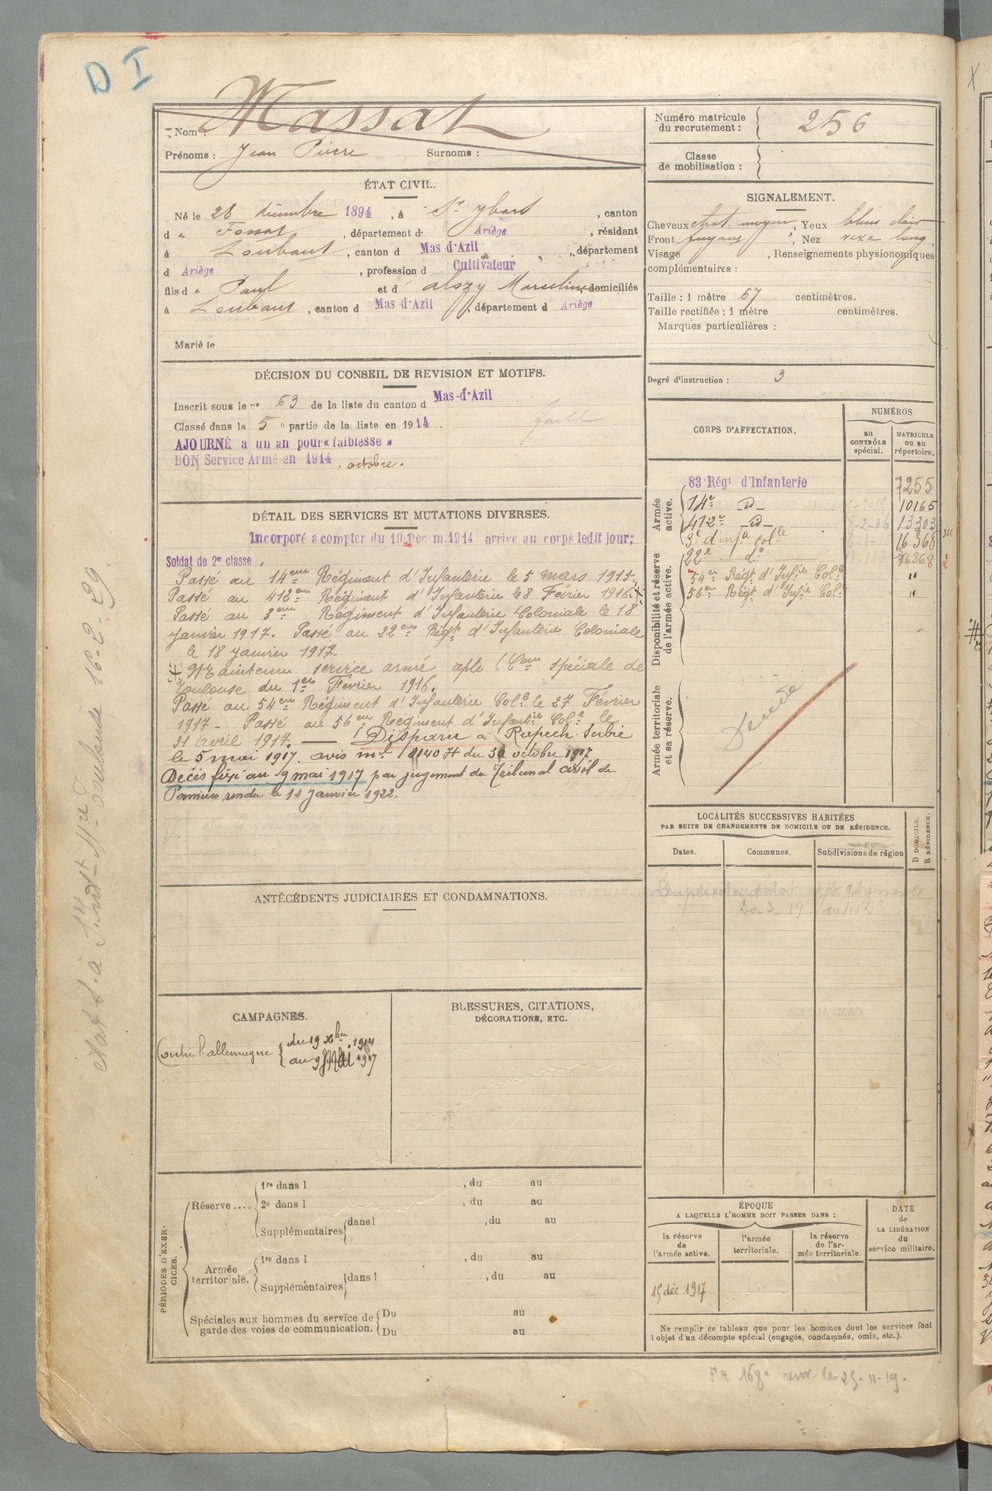 D I
Nom : Massat
Prénoms : Jean Pierre Surnoms :
Numéro matricule du recrutement : 256
Classe de mobilisation :
ÉTAT CIVIL.
Né le 28 décembre 1894, à St Ybars, canton
d e Fossat, département d Ariège, résidant
à Loubaut, canton d Mas d'Azil, département
d Ariège, profession d Cultivateur
fils d e Paul et d Marceline domiciliés
à Loubaut, canton d Mas d'Azil, département d Ariège
Marié le
SIGNALEMENT.
Cheveux chat. moyen, Yeux bleus clair
Front fuyant, Nez vexe long.
Visage , Renseignements physionomiques
complémentaires :
Taille : 1 mètre 67 centimètres.
Taille rectifiée : 1 mètre centimètres.
Marques particulières :
Degré d'instruction : 3
DÉCISION DU CONSEIL DE REVISION ET MOTIFS.
Inscrit sous le n° 63 de la liste du canton d Mas-d'Azil
Classé dans la 5 e partie de la liste en 1914.
AJOURNÉ à un an pour « faiblesse »
BON Service Armé en 1914. octobre.
DÉTAIL DES SERVICES ET MUTATIONS DIVERSES.
Incorporé à compter du 19 Decem. 1914 arrivé au corps ledit jour;
Soldat de 2e classe,
Passé au 14eme Régiment d'Infanterie le 5 mars 1915.
Passé au 412eme Régiment d'Infanterie le 8 Février 1916.
Passé au 3eme Régiment d'Infanterie Coloniale le 18
janvier 1917. Passé au 22eme Régt d'Infanterie Coloniale
le 18 janvier 1917
Maintenu service armé apte (Con spéciale de
Toulouse du 1er Février 1916.
Passé au 54eme Régiment d'Infanterie Colle le 27 Février
1917 - Passé au 56eme Régiment d'Infantie Colle le
21 Avril 1917. — Disparu à Rapech Serbie
le 5 mai 1917. avis ml 18140 H du 30 octobre 1917
Décès fixé au 9 mai 1917 par jugement du Tribunal civil de
Pamiers rendu le 11 Janvier 1922.
CORPS D'AFFECTATION.
NUMÉROS
au CONTRÔLE spécial.
MATRICULE ou au répertoire.
Armée active.
83 Régt d'Infanterie 7255
14e d 10165
412e d 13303
3e d'infie colle 16368
22e do
Disponibilité et réserve de l'armée active.
54e Régt d'Infie Colle "
56e Régt d'Infie Col "
Armée territoriale et sa réserve.
Décédé
LOCALITÉS SUCCESSIVES HABITÉES
PAR SUITE DE CHANGEMENTS DE DOMICILE OU DE RÉSIDENCE.
Dates. Communes. Subdivisions de région
D DOMICILE. R RÉSIDENCE.
ANTÉCÉDENTS JUDICIAIRES ET CONDAMNATIONS.
CAMPAGNES.
Contre l'allemagne du 19 Xbre 1914
au 9 Mai 1917
BLESSURES, CITATIONS,
DÉCORATIONS, ETC.
PÉRIODES D'EXERCICES.
Réserve.... 1re dans l , du au
2e dans l , du au
Supplémentaires dans l , du au
Armée territoriale. 1re dans l , du au
Supplémentaires dans l , du au
Spéciales aux hommes du service de garde des voies de communication. Du au
Du au
ÉPOQUE
A LAQUELLE L'HOMME DOIT PASSER DANS :
la réserve de l'armée active.
l'armée territoriale.
la réserve de l'armée territoriale.
DATE de LA LIBÉRATION du service militaire.
15 déc 1917
Ne remplir ce tableau que pour les hommes dont les services font
l'objet d'un décompte spécial (engagés, condamnés, omis, etc.).